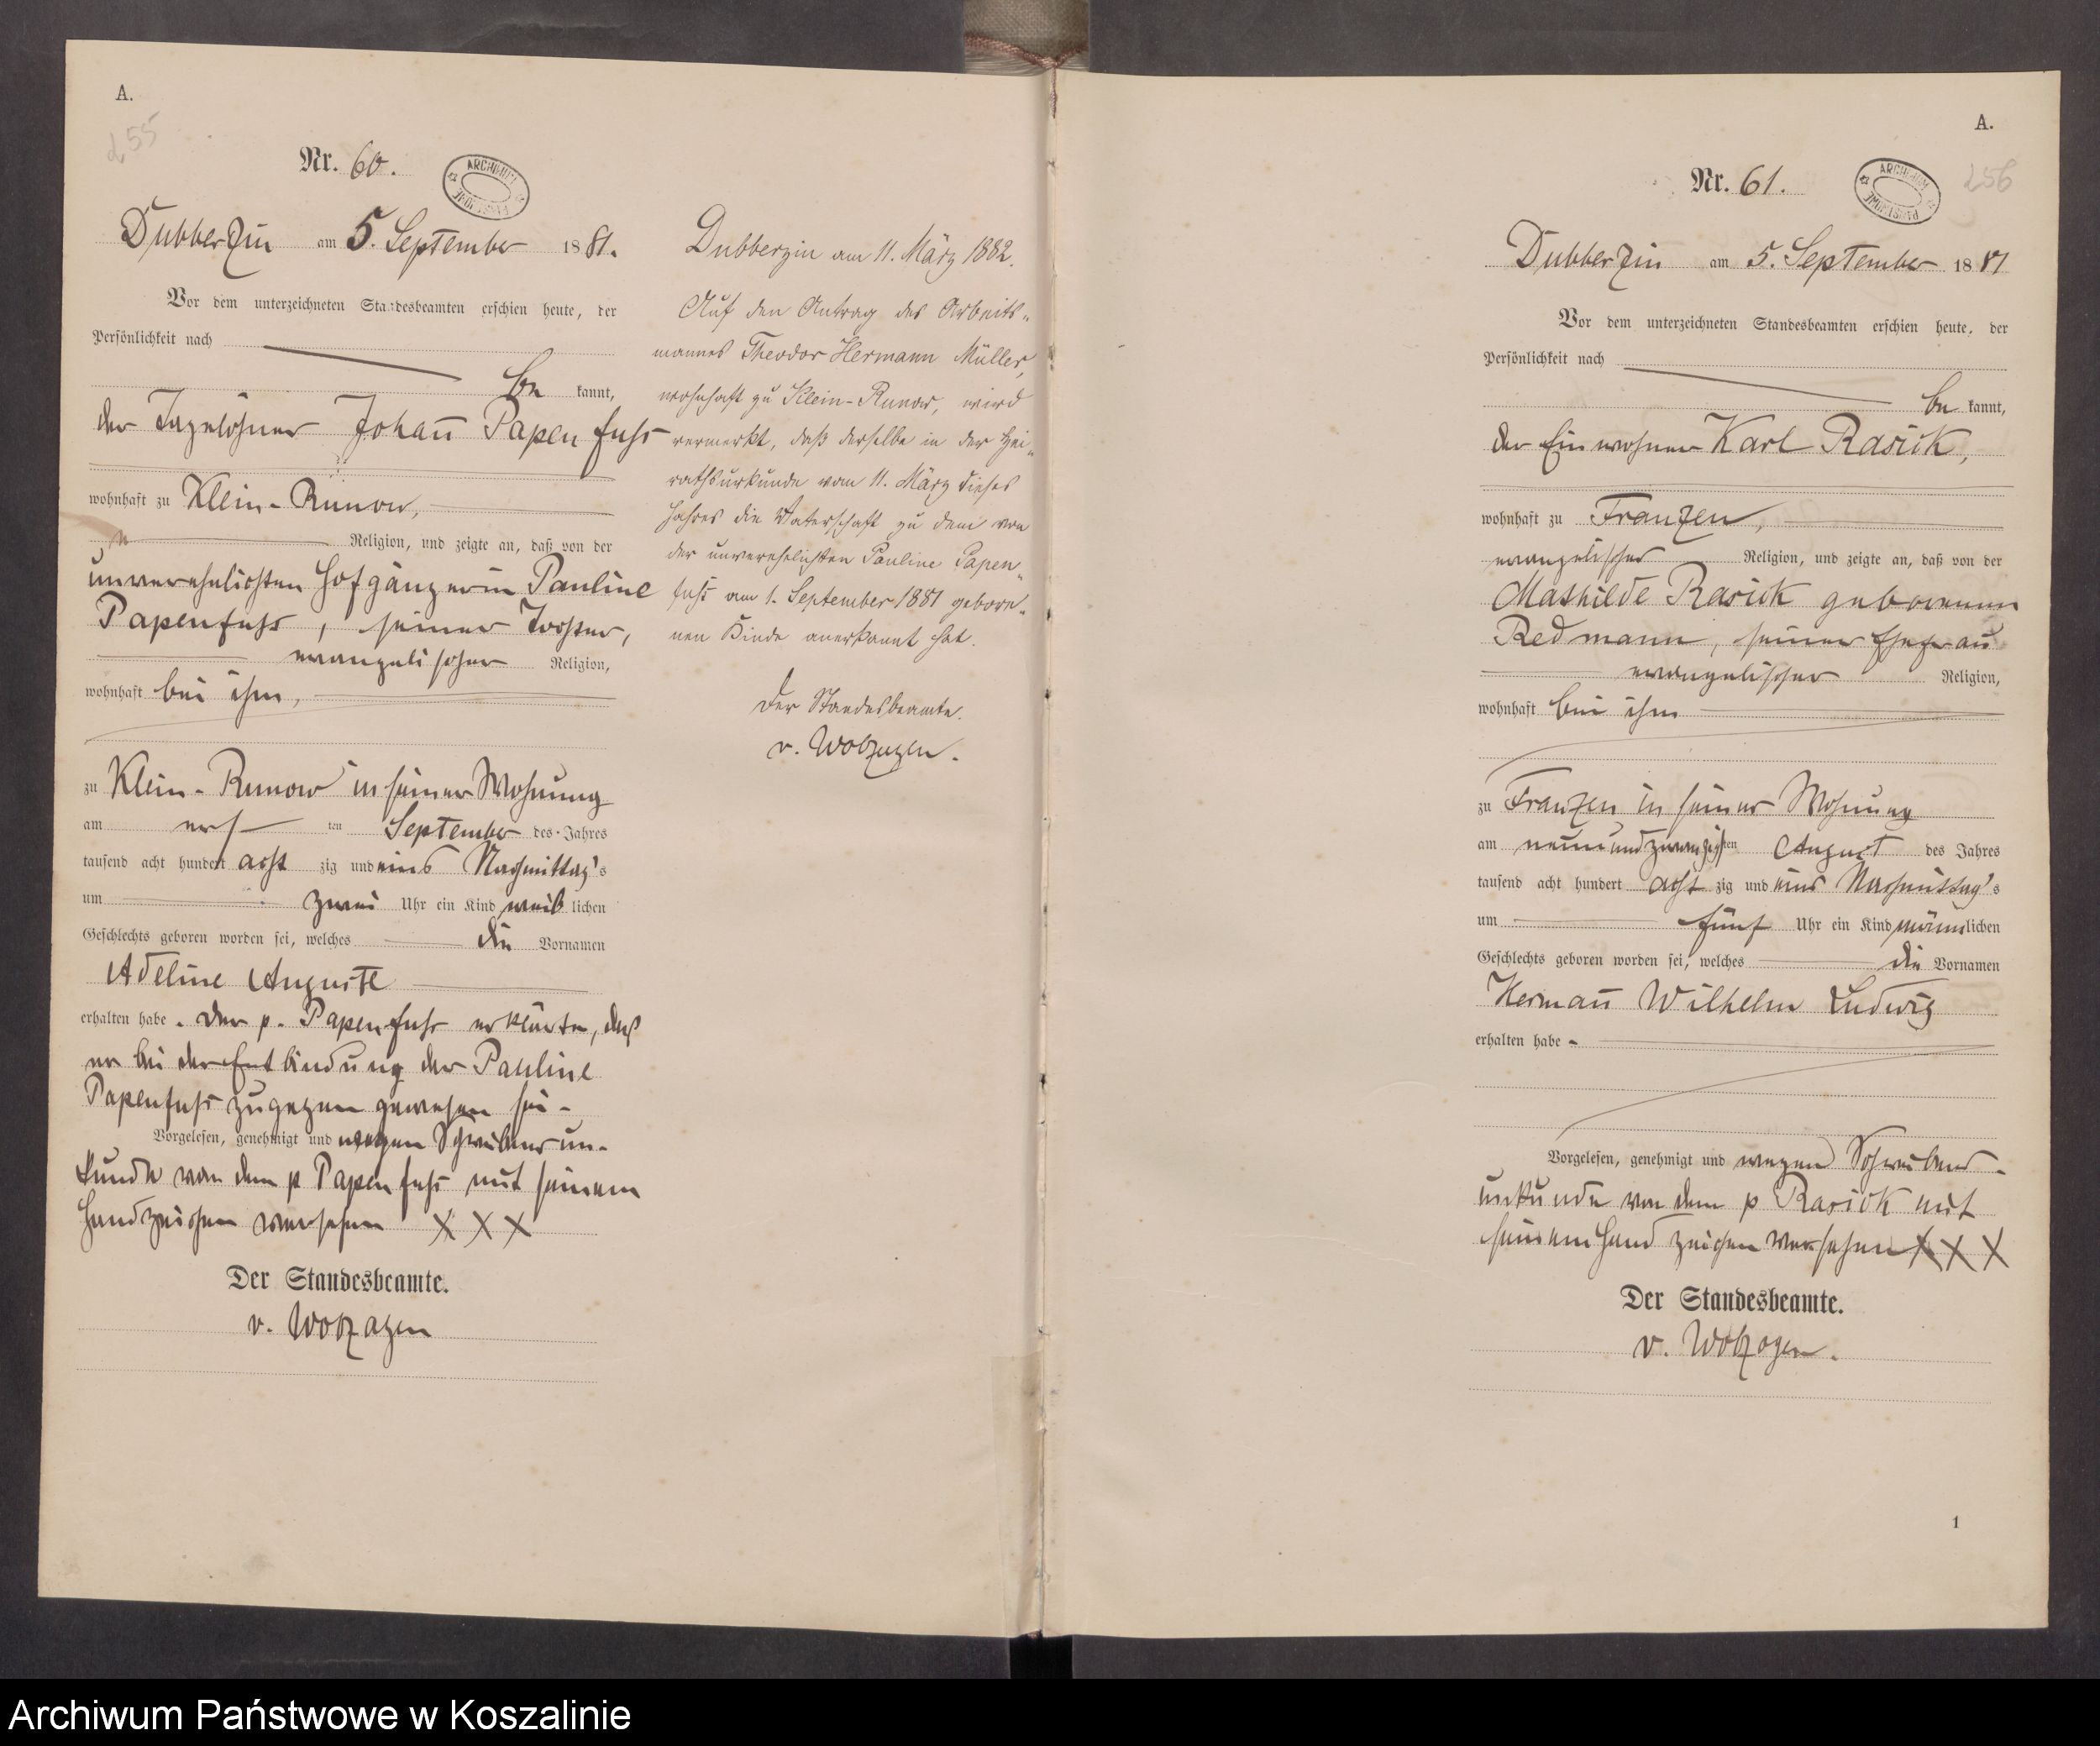 A.
255
Nr. 60.
ARCHIWUM PAŃSTWOWE
Dubberzin am 5. September 1881.
Vor dem unterzeichneten Standesbeamten erschien heute, der
Persönlichkeit nach
be kannt,
der Tagelöhner Johann Papenfuhs
wohnhaft zu Klein-Runow,
Religion, und zeigte an, daß von der
unverehelichten Hofgängerin Pauline
Papenfuhs, seiner Tochter,
evangelischer Religion,
wohnhaft bei ihm,
zu Klein-Runow in seiner Wohnung
am ersten September des Jahres
tausend acht hundert acht zig und eins Nachmittag's
um zwei Uhr ein Kind weiblichen
Geschlechts geboren worden sei, welches die Vornamen
Adeline Auguste
erhalten habe. Der p. Papenfuhs erklärte, daß
er bei der Entbindung der Pauline
Papenfuhs zugegen gewesen sei-
Vorgelesen, genehmigt und wegen Schreibens un-
kunde von dem p Papenfuhs mit seinem
Handzeichen versehen XXX
Der Standesbeamte.
v. Wolzogen
Dubberzin am 11. März 1882.
Auf den Antrag des Arbeits-
mannes Theodor Hermann Müller,
wohnhaft zu Klein-Runow, wird
vermerkt, daß derselbe in der Hei-
rathsurkunde vom 11. März dieses
Jahres die Vaterschaft zu dem von
der unverehelichten Pauline Papen-
fuhs am 1. September 1881 gebore-
nen Kinde anerkannt hat.
Der Standesbeamte.
v. Wolzogen.
A.
256
Nr. 61.
ARCHIWUM PAŃSTWOWE
Dubberzin am 5. September 1881
Vor dem unterzeichneten Standesbeamten erschien heute, der
Persönlichkeit nach
be kannt,
der Einwohner Karl Rasick,
wohnhaft zu Franzen,
evangelischer Religion, und zeigte an, daß von der
Mathilde Rasick geborenen
Redmann, seiner Ehefrau
evangelischer Religion,
wohnhaft bei ihm
zu Franzen in seiner Wohnung
am neunundzwanzigsten August des Jahres
tausend acht hundert acht zig und eins Nachmittag's
um fünf Uhr ein Kind männlichen
Geschlechts geboren worden sei, welches die Vornamen
Hermann Wilhelm Ludwig
erhalten habe -
Vorgelesen, genehmigt und wegen Schreibens-
unkunde von dem p Rasick mit
seinem Handzeichen versehen XXX
Der Standesbeamte.
v. Wolzogen.
1
Archiwum Państwowe w Koszalinie